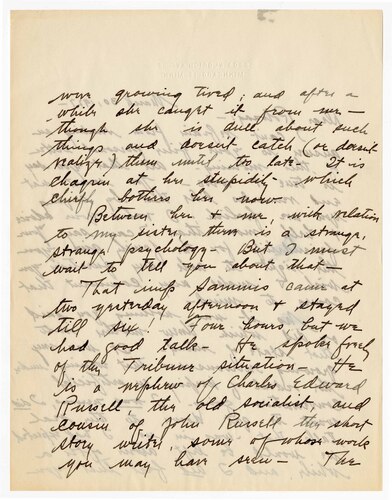 were growing tired; and after a
while she caught it from me —
though she is dull about such
things and doesn't catch (or doesn't
realize) them until too late. It is
chagrin at her stupidity which
chiefly bothers her now.
Between her & me, with relation
to my sister, there is a strange,
strange psychology — But I must
wait to tell you about that —
That imp Sammis came at
two yesterday afternoon & stayed
till six! Four hours, but we
had good talk — He spoke freely
of the Tribune situation — He
is a nephew of Charles Edward
Russell, the old socialist, and
cousin of John Russell the short
story writer, some of whose work
you may have seen — The